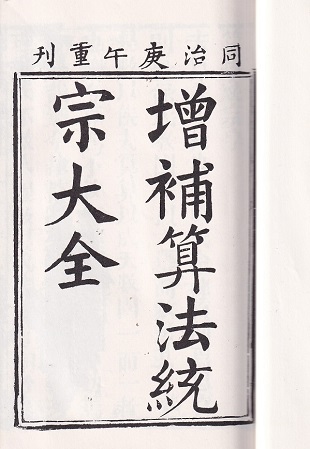 同治庚午重刊
增補算法統
宗大全